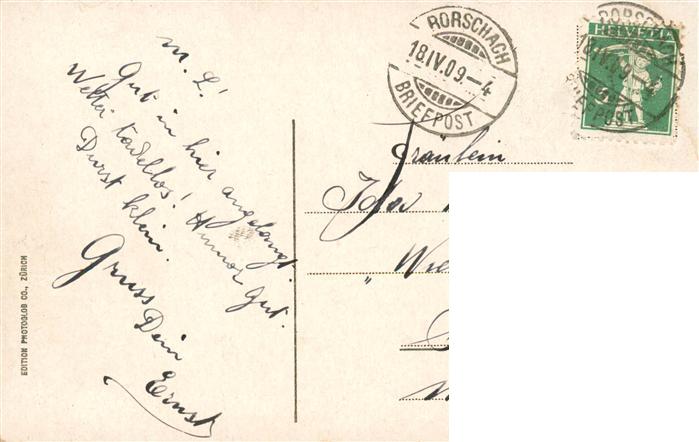 M. L!
Gut in hier angelangt.
Wetter tadellos! Humor gut.
Durst klein.
Gruss Dein
Ernst
EDITION PHOTOGLOB CO., ZÜRICH
RORSCHACH
18.IV.09-4
BRIEFPOST
HELVETIA
RORSCHACH
18.IV.09-4
BRIEFPOST
Fräulein
Ida
"Wie